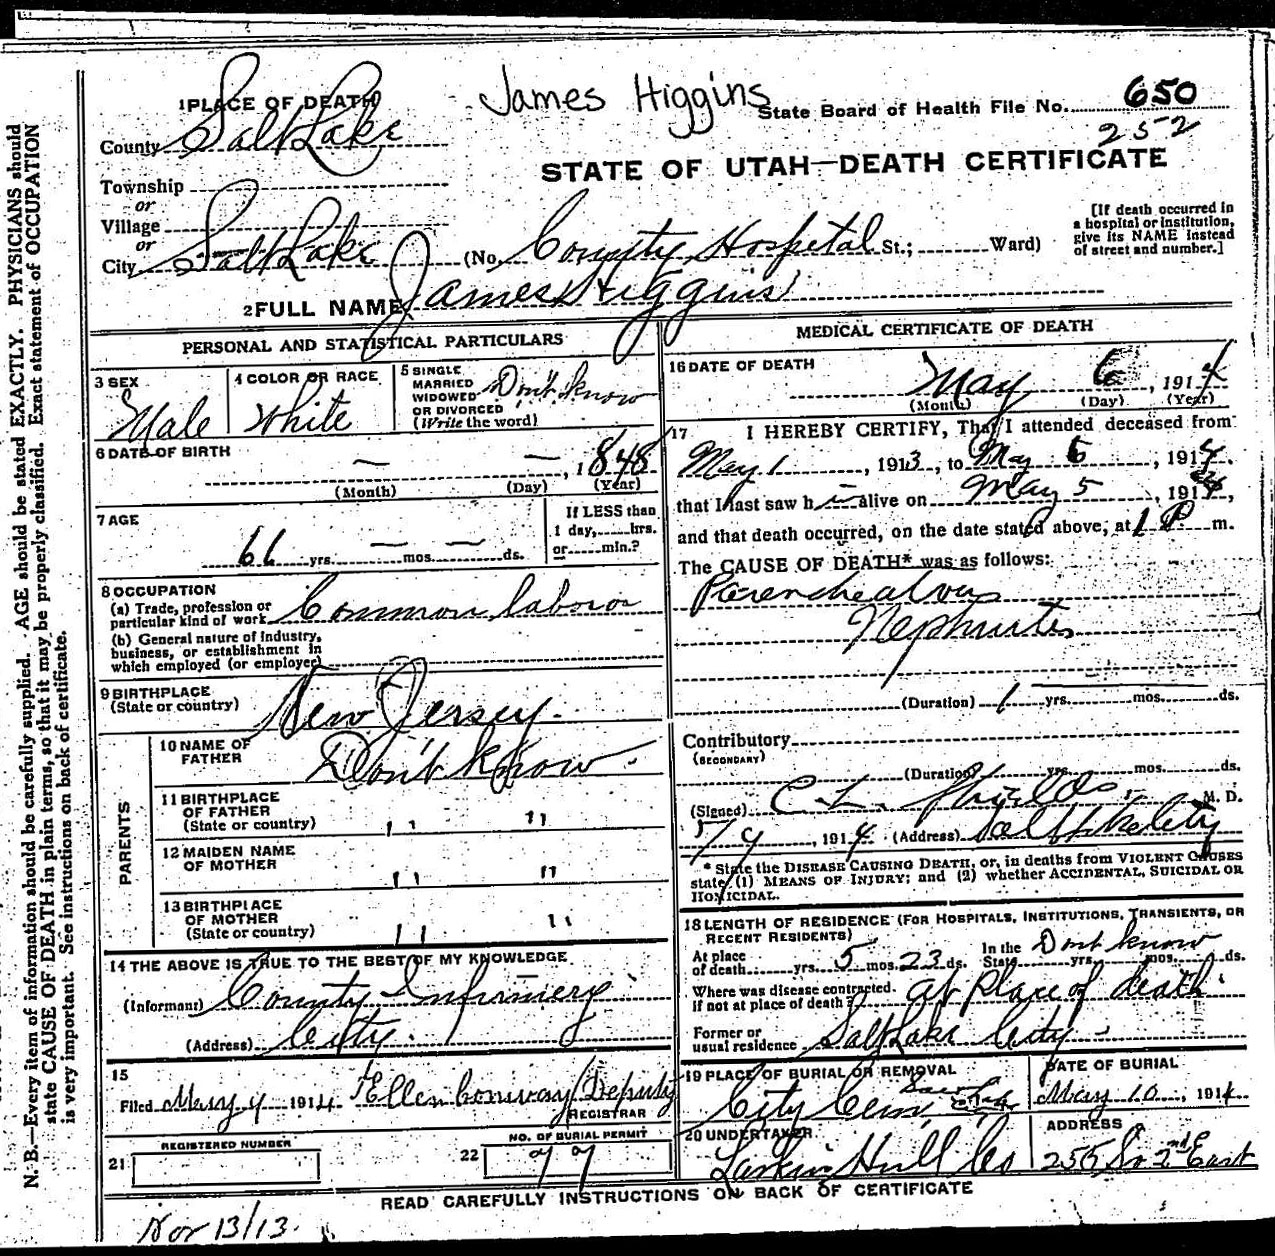 James Higgins
State Board of Health File No. 650
252
STATE OF UTAH—DEATH CERTIFICATE
1 PLACE OF DEATH
County Salt Lake
Township
or
Village
or
City Salt Lake (No. County Hospital St.; Ward)
[If death occurred in
a hospital or institution,
give its NAME instead
of street and number.]
2 FULL NAME James Higgins
PERSONAL AND STATISTICAL PARTICULARS
3 SEX
Male
4 COLOR OR RACE
White
5 SINGLE
MARRIED
WIDOWED
OR DIVORCED
(Write the word)
Don't know
6 DATE OF BIRTH
— — , 1848
(Month) (Day) (Year)
7 AGE
66 yrs. — mos. — ds.
If LESS than
1 day, hrs.
or min.?
8 OCCUPATION
(a) Trade, profession or
particular kind of work Common labor
(b) General nature of industry,
business, or establishment in
which employed (or employer)
9 BIRTHPLACE
(State or country)
New Jersey
PARENTS
10 NAME OF
FATHER
Don't know
11 BIRTHPLACE
OF FATHER
(State or country) " "
12 MAIDEN NAME
OF MOTHER " "
13 BIRTHPLACE
OF MOTHER
(State or country) " "
14 THE ABOVE IS TRUE TO THE BEST OF MY KNOWLEDGE
(Informant) County Infirmery
(Address) City.
15
Filed May 9 1914 Ellen Conway Deputy
REGISTRAR
REGISTERED NUMBER
21
NO. OF BURIAL PERMIT
22 77
MEDICAL CERTIFICATE OF DEATH
16 DATE OF DEATH
May 6, 1914
(Month) (Day) (Year)
17 I HEREBY CERTIFY, That I attended deceased from
May 1, 1913, to May 6, 1914,
that I last saw h alive on May 5, 1914,
and that death occurred, on the date stated above, at 1 P m.
The CAUSE OF DEATH* was as follows:
Nephritis
(Duration) 1 yrs. mos. ds.
Contributory
(SECONDARY)
(Duration) yrs. mos. ds.
(Signed) C. L. Shields, M. D.
5/9, 1914 (Address) Salt Lake City
* State the DISEASE CAUSING DEATH, or, in deaths from VIOLENT CAUSES
state (1) MEANS OF INJURY; and (2) whether ACCIDENTAL, SUICIDAL OR
HOMICIDAL.
18 LENGTH OF RESIDENCE (FOR HOSPITALS, INSTITUTIONS, TRANSIENTS, OR
RECENT RESIDENTS)
At place
of death yrs. 5 mos. 23 ds.
In the
State yrs. mos. ds.
Dont know
Where was disease contracted,
if not at place of death? at Place of death.
Former or
usual residence Salt Lake City
19 PLACE OF BURIAL OR REMOVAL
City Cem.
DATE OF BURIAL
May 10, 1914
20 UNDERTAKER
Larkin Hull Co
ADDRESS
255 So 2nd East
READ CAREFULLY INSTRUCTIONS ON BACK OF CERTIFICATE
Nov 13/13.
N. B.—Every item of information should be carefully supplied. AGE should be stated EXACTLY. PHYSICIANS should
state CAUSE OF DEATH in plain terms, so that it may be properly classified. Exact statement of OCCUPATION
is very important. See instructions on back of certificate.